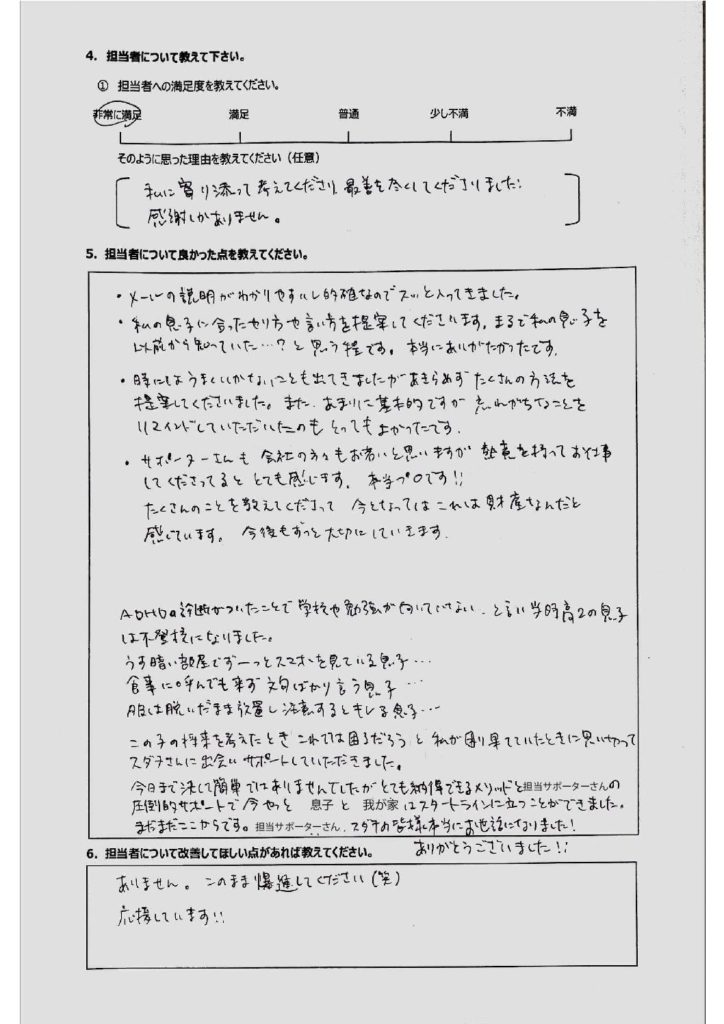 4．担当者について教えて下さい。
① 担当者への満足度を教えてください。
非常に満足 満足 普通 少し不満 不満
そのように思った理由を教えてください（任意）
私に寄り添って考えてくださり、最善を尽くしてくださりました。
感謝しかありません。
5．担当者について良かった点を教えてください。
・メールの説明がわかりやすいし的確なのでスッと入ってきました。
・私の息子に合ったやり方や言い方を提案してくださいます。まるで私の息子を
以前から知っていた…？と思う程です。本当にありがたかったです。
・時にしようまくいかないことも出てきましたがあきらめずたくさんの方法を
提案してくださいました。また、あまりに基本的ですが忘れがちなことを
リマインドしていただいたのもとってもよかったです。
・サポーターさんも会社の方々もお若いと思いますが熱意を持ってお仕事
してくださってるととても感じます。本当プロです!!
たくさんのことを教えてくださって 今となってはこれは財産なんだと
感じています。今後もずっと大切にしていきます。
ADHDの診断がついたことで学校や勉強が向いていない、と言い当時高2の息子
は不登校になりました。
うす暗い部屋でずーっとスマホを見ている息子…
食事に呼んでも来ず文句ばかり言う息子…
服は脱いだまま放置し注意するとキレる息子…
この子の将来を考えたとき これでは困るだろうと私が困り果てていたときに思い切って
スダチさんに出会いサポートしていただきました。
今日まで決して簡単ではありませんでしたがとても納得できるメソッドと担当サポーターさんの
圧倒的サポートで今やっと 息子 と 我が家 はスタートラインに立つことができました。
まだまだここからです。担当サポーターさん、スダチの皆様本当にお世話になりました!
ありがとうございました!!
6．担当者について改善してほしい点があれば教えてください。
ありません。このまま爆進してください(笑)
応援しています!!